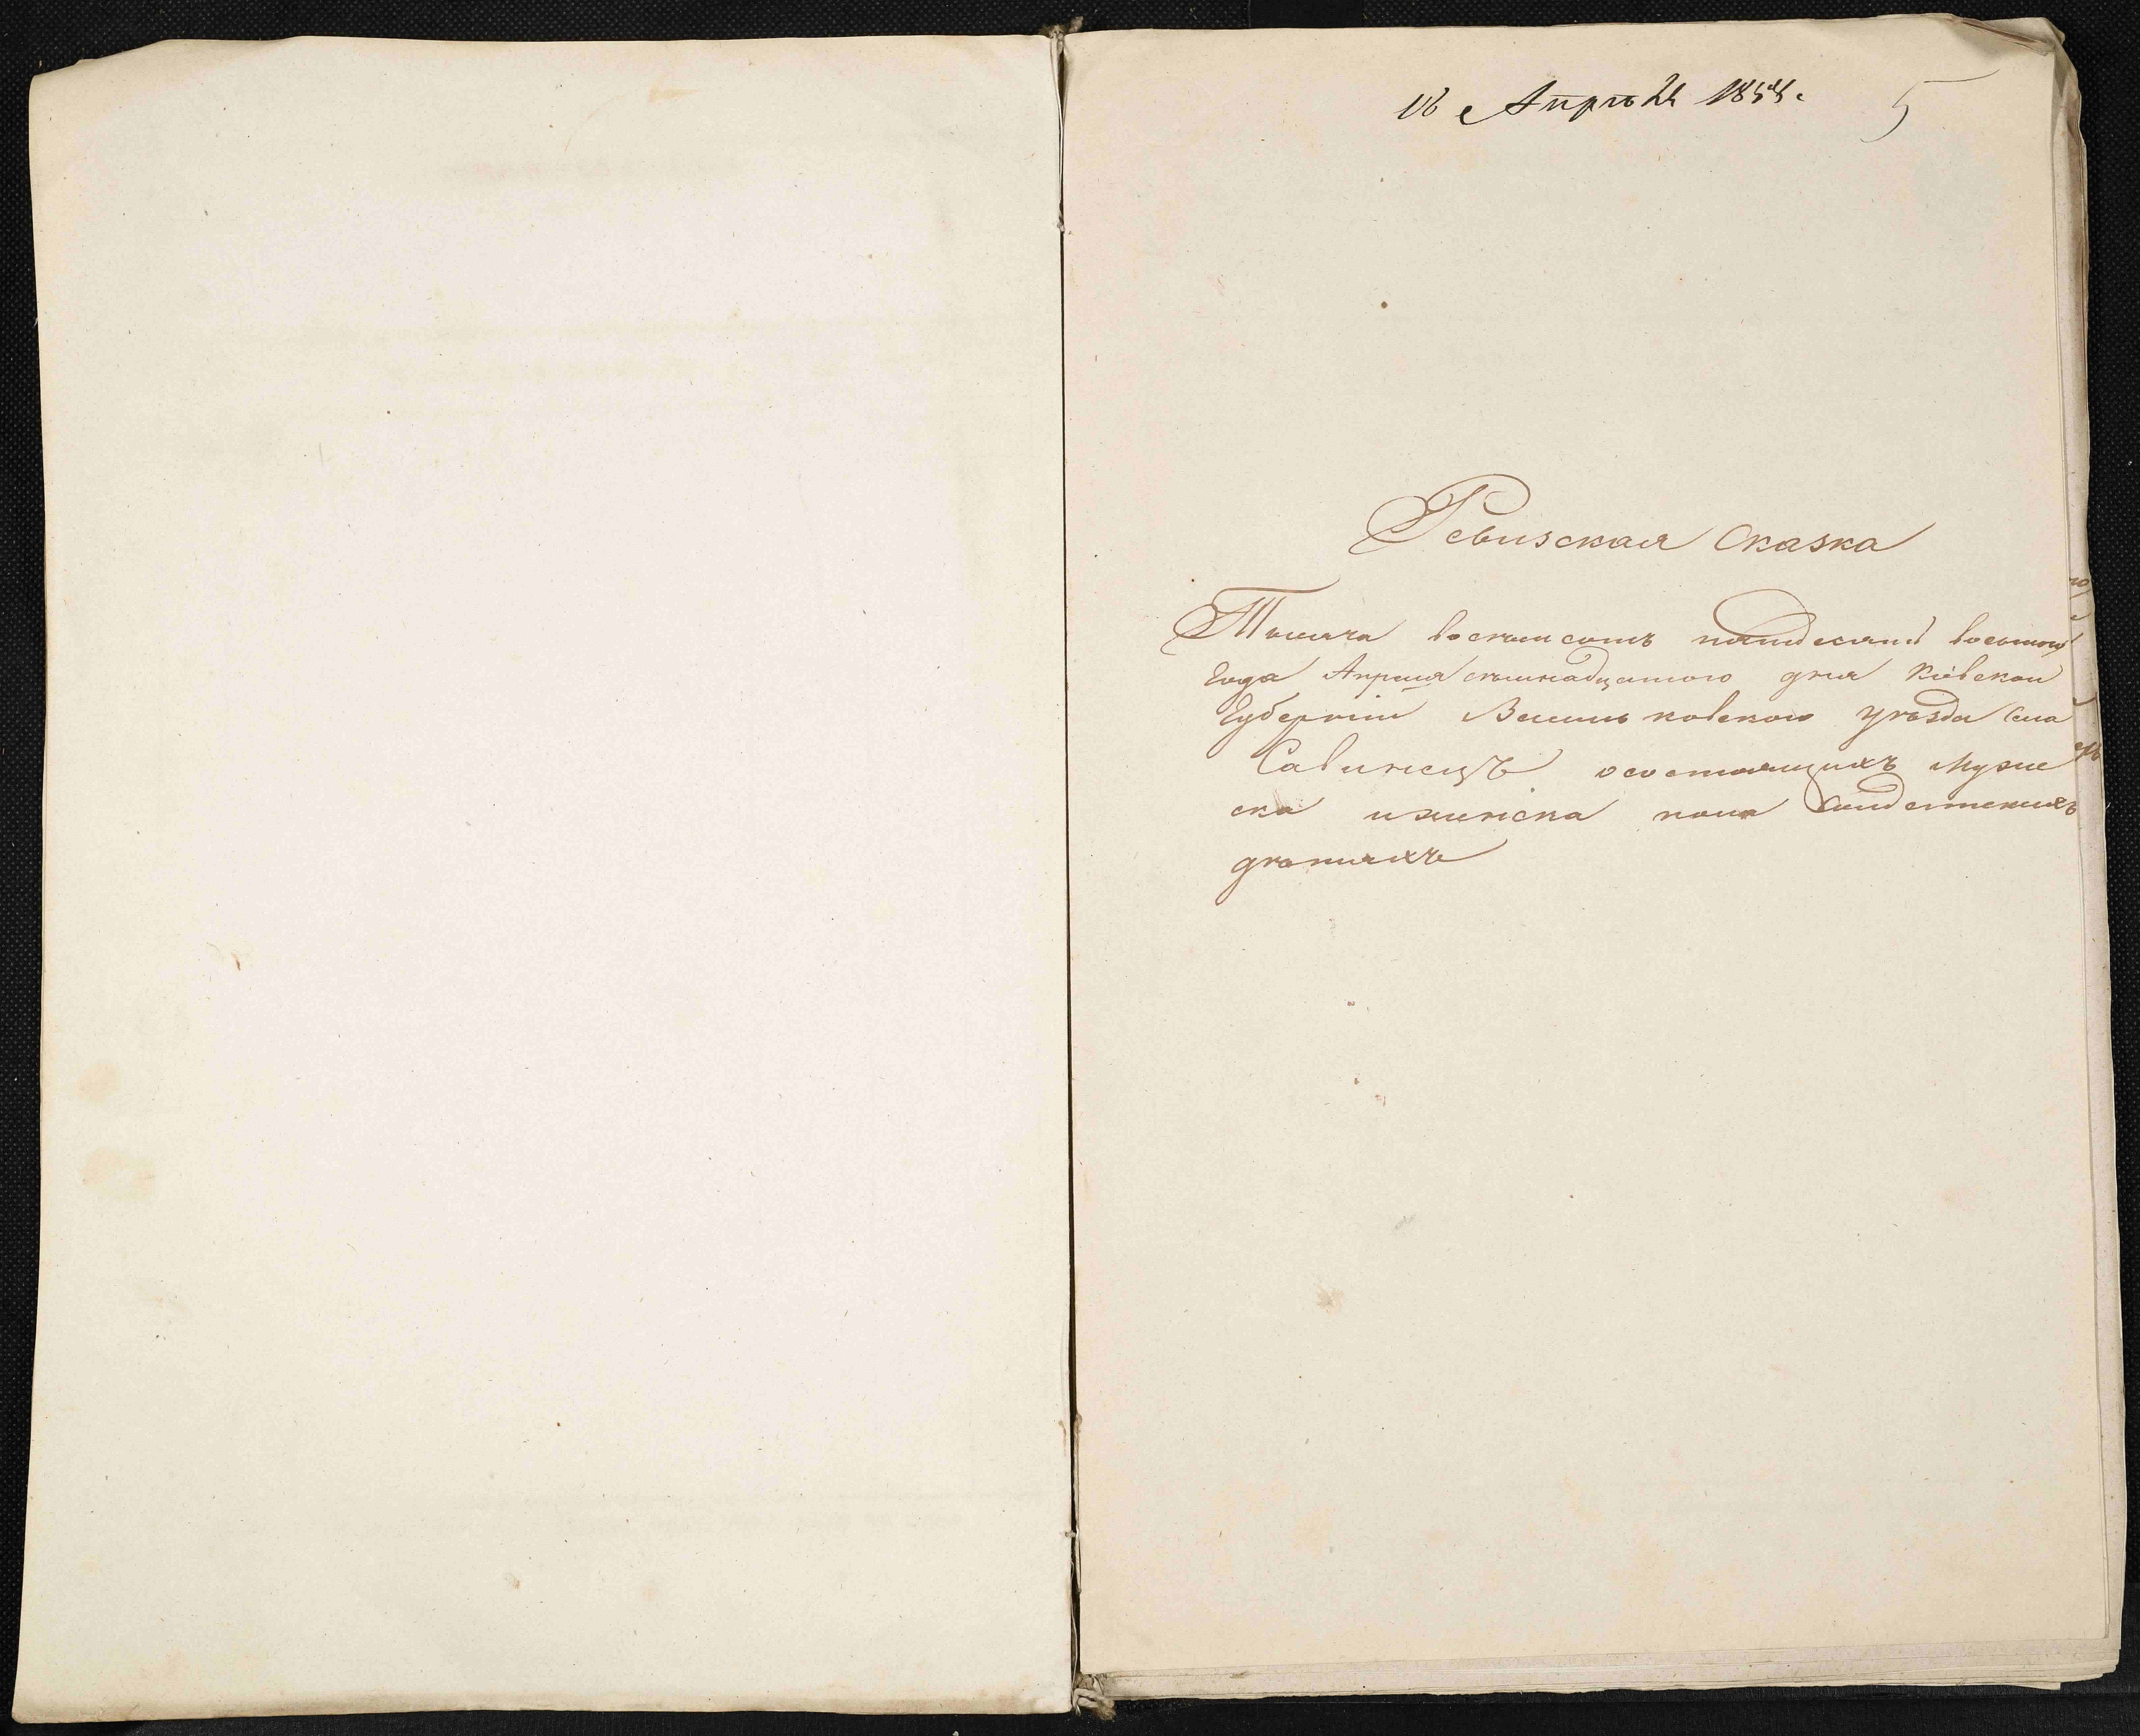 18 Апрѣля 1858.
5
Ревизская Сказка
Тысяча восѣмсотъ пятдесятъ восмого
Года Апреля сѣмнадцатого дня Кіевской
Губерніи Василь ковского уѣзда Села
Савинецъ осостоящихъ Муже
ска иженска пола